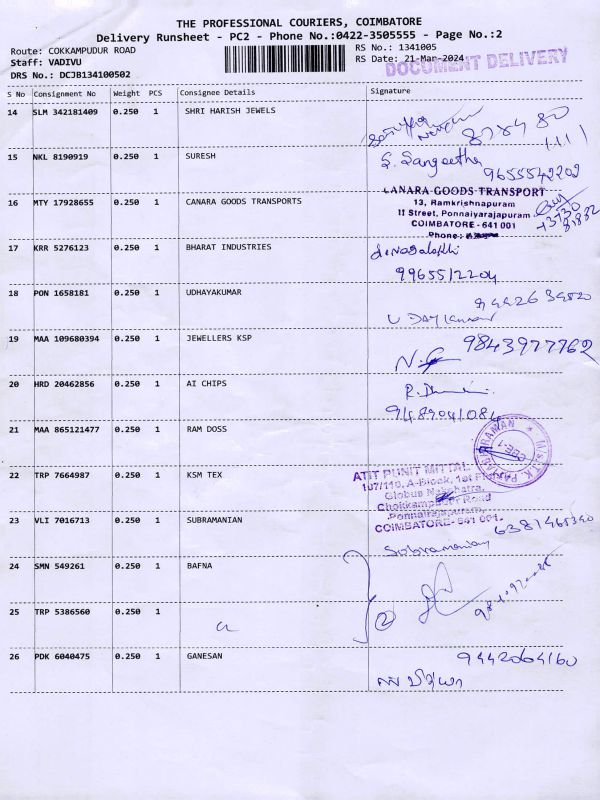 THE PROFESSIONAL COURIERS, COIMBATORE
Delivery Runsheet - PC2 - Phone No.:0422-3505555 - Page No.:2
Route: COKKAMPUDUR ROAD RS No.: 1341005
Staff: VADIVU RS Date: 21-Mar-2024
DOCUMENT DELIVERY
DRS No.: DCJB134100502
S No Consignment No Weight PCS Consignee Details Signature
14 SLM 342181409 0.250 1 SHRI HARISH JEWELS
15 NKL 8190919 0.250 1 SURESH S. Sangeetha
9655542202
16 MTY 17928655 0.250 1 CANARA GOODS TRANSPORTS CANARA GOODS TRANSPORT
13, Ramkrishnapuram
II Street, Ponnaiyarajapuram
COIMBATORE - 641 001
Phone:
17 KRR 5276123 0.250 1 BHARAT INDUSTRIES
9965512204
18 PON 1658181 0.250 1 UDHAYAKUMAR
19 MAA 109680394 0.250 1 JEWELLERS KSP 9843977762
20 HRD 20462856 0.250 1 AI CHIPS
9489041084
21 MAA 865121477 0.250 1 RAM DOSS
22 TRP 7664987 0.250 1 KSM TEX ATIT PUNIT MITTAL
107/110, A-Block, 1st Floor
Globus Nakshatra,
Chokkampudur Road
Ponnairajapuram,
COIMBATORE - 641 001.
23 VLI 7016713 0.250 1 SUBRAMANIAN
Subramaniam
24 SMN 549261 0.250 1 BAFNA
25 TRP 5386560 0.250 1 2
26 PDK 6040475 0.250 1 GANESAN 9442064160